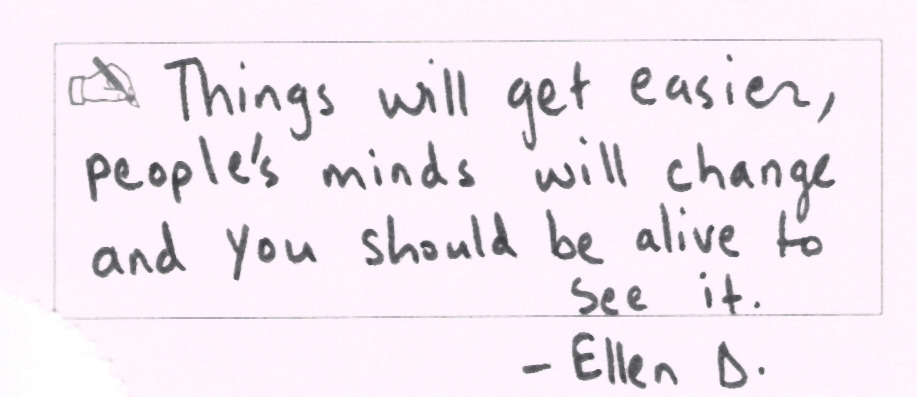 Things will get easier,
people's minds will change
and you should be alive to
see it.
- Ellen D.